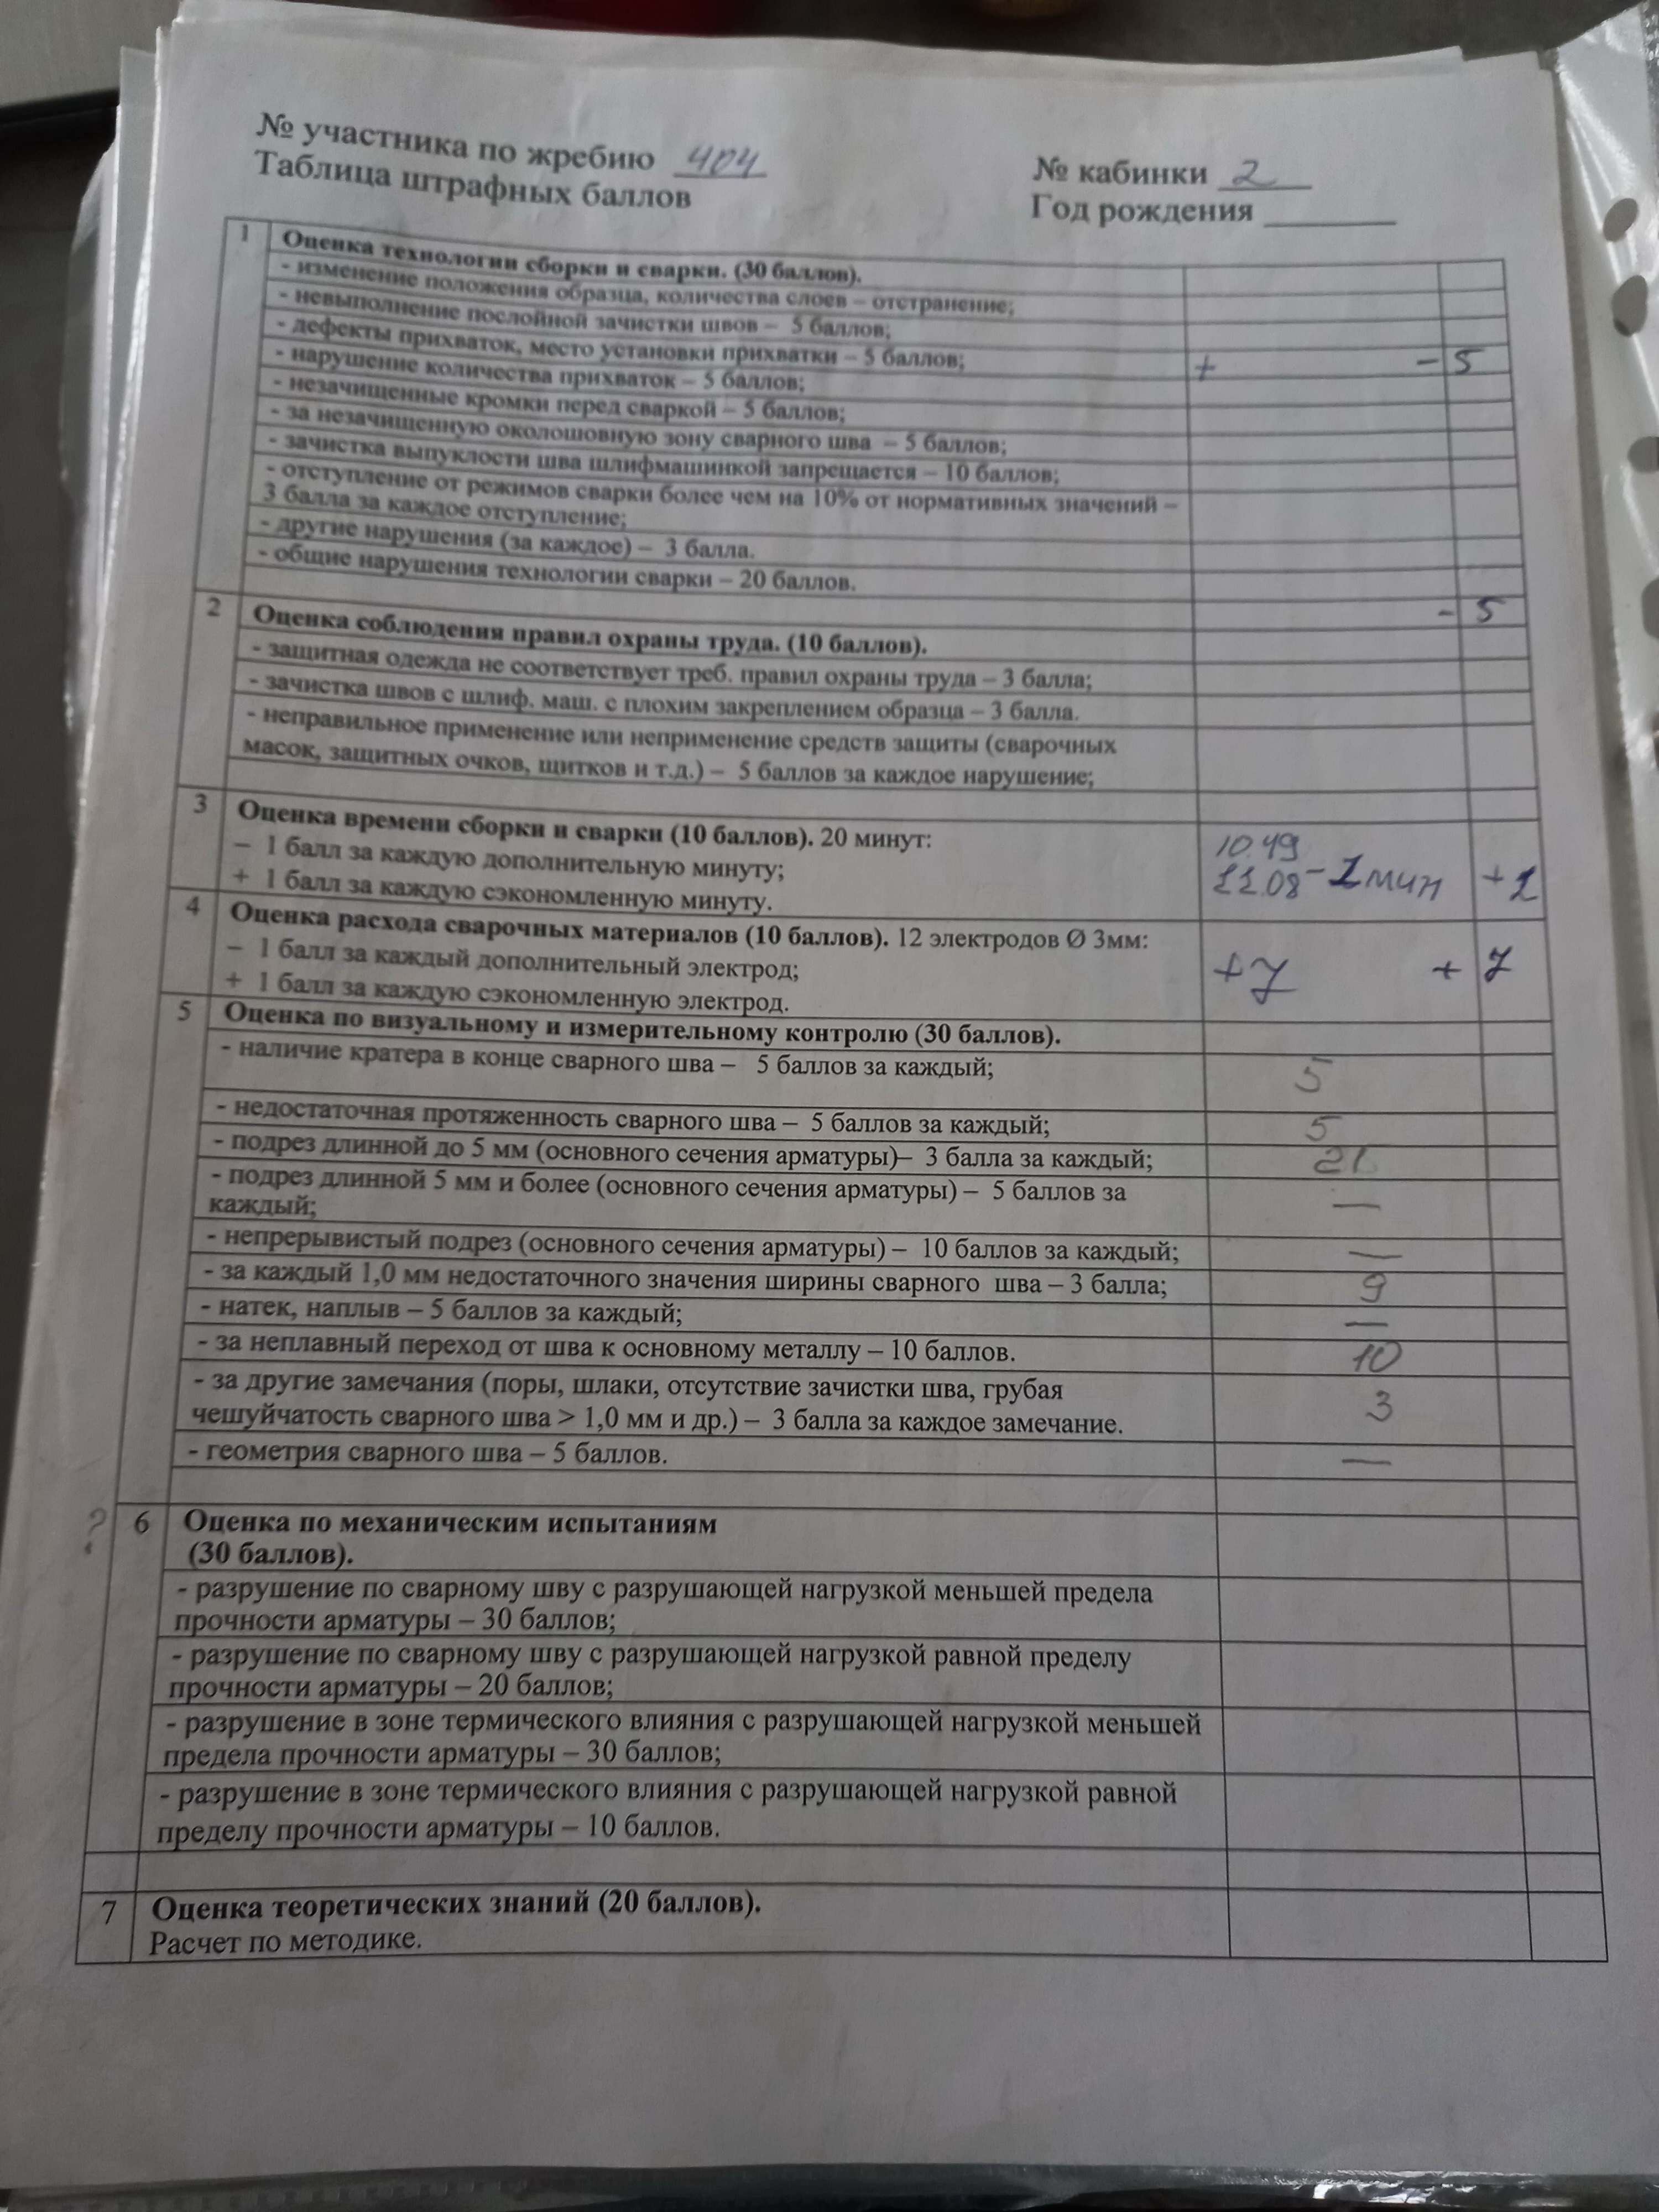 № участника по жребию 404
№ кабинки 2
Таблица штрафных баллов
Год рождения
1 Оценка технологии сборки и сварки. (30 баллов).
- изменение положения образца, количества слоев – отстранение;
- невыполнение послойной зачистки швов – 5 баллов;
- дефекты прихваток, место установки прихватки – 5 баллов; + - 5
- нарушение количества прихваток – 5 баллов;
- незачищенные кромки перед сваркой – 5 баллов;
- за незачищенную околошовную зону сварного шва – 5 баллов;
- зачистка выпуклости шва шлифмашинкой запрещается – 10 баллов;
- отступление от режимов сварки более чем на 10% от нормативных значений –
3 балла за каждое отступление;
- другие нарушения (за каждое) – 3 балла.
- общие нарушения технологии сварки – 20 баллов.
- 5
2 Оценка соблюдения правил охраны труда. (10 баллов).
- защитная одежда не соответствует треб. правил охраны труда – 3 балла;
- зачистка швов с шлиф. маш. с плохим закреплением образца – 3 балла.
- неправильное применение или неприменение средств защиты (сварочных
масок, защитных очков, щитков и т.д.) – 5 баллов за каждое нарушение;
3 Оценка времени сборки и сварки (10 баллов). 20 минут: 10.49
– 1 балл за каждую дополнительную минуту; 11.08 - 1 мин + 1
+ 1 балл за каждую сэкономленную минуту.
4 Оценка расхода сварочных материалов (10 баллов). 12 электродов Ø 3мм:
– 1 балл за каждый дополнительный электрод; +7 + 7
+ 1 балл за каждую сэкономленную электрод.
5 Оценка по визуальному и измерительному контролю (30 баллов).
- наличие кратера в конце сварного шва – 5 баллов за каждый; 5
- недостаточная протяженность сварного шва – 5 баллов за каждый; 5
- подрез длинной до 5 мм (основного сечения арматуры)– 3 балла за каждый; 21
- подрез длинной 5 мм и более (основного сечения арматуры) – 5 баллов за —
каждый;
- непрерывистый подрез (основного сечения арматуры) – 10 баллов за каждый; —
- за каждый 1,0 мм недостаточного значения ширины сварного шва – 3 балла; 9
- натек, наплыв – 5 баллов за каждый; —
- за неплавный переход от шва к основному металлу – 10 баллов. 10
- за другие замечания (поры, шлаки, отсутствие зачистки шва, грубая 3
чешуйчатость сварного шва > 1,0 мм и др.) – 3 балла за каждое замечание.
- геометрия сварного шва – 5 баллов. —
? 6 Оценка по механическим испытаниям
(30 баллов).
- разрушение по сварному шву с разрушающей нагрузкой меньшей предела
прочности арматуры – 30 баллов;
- разрушение по сварному шву с разрушающей нагрузкой равной пределу
прочности арматуры – 20 баллов;
- разрушение в зоне термического влияния с разрушающей нагрузкой меньшей
предела прочности арматуры – 30 баллов;
- разрушение в зоне термического влияния с разрушающей нагрузкой равной
пределу прочности арматуры – 10 баллов.
7 Оценка теоретических знаний (20 баллов).
Расчет по методике.